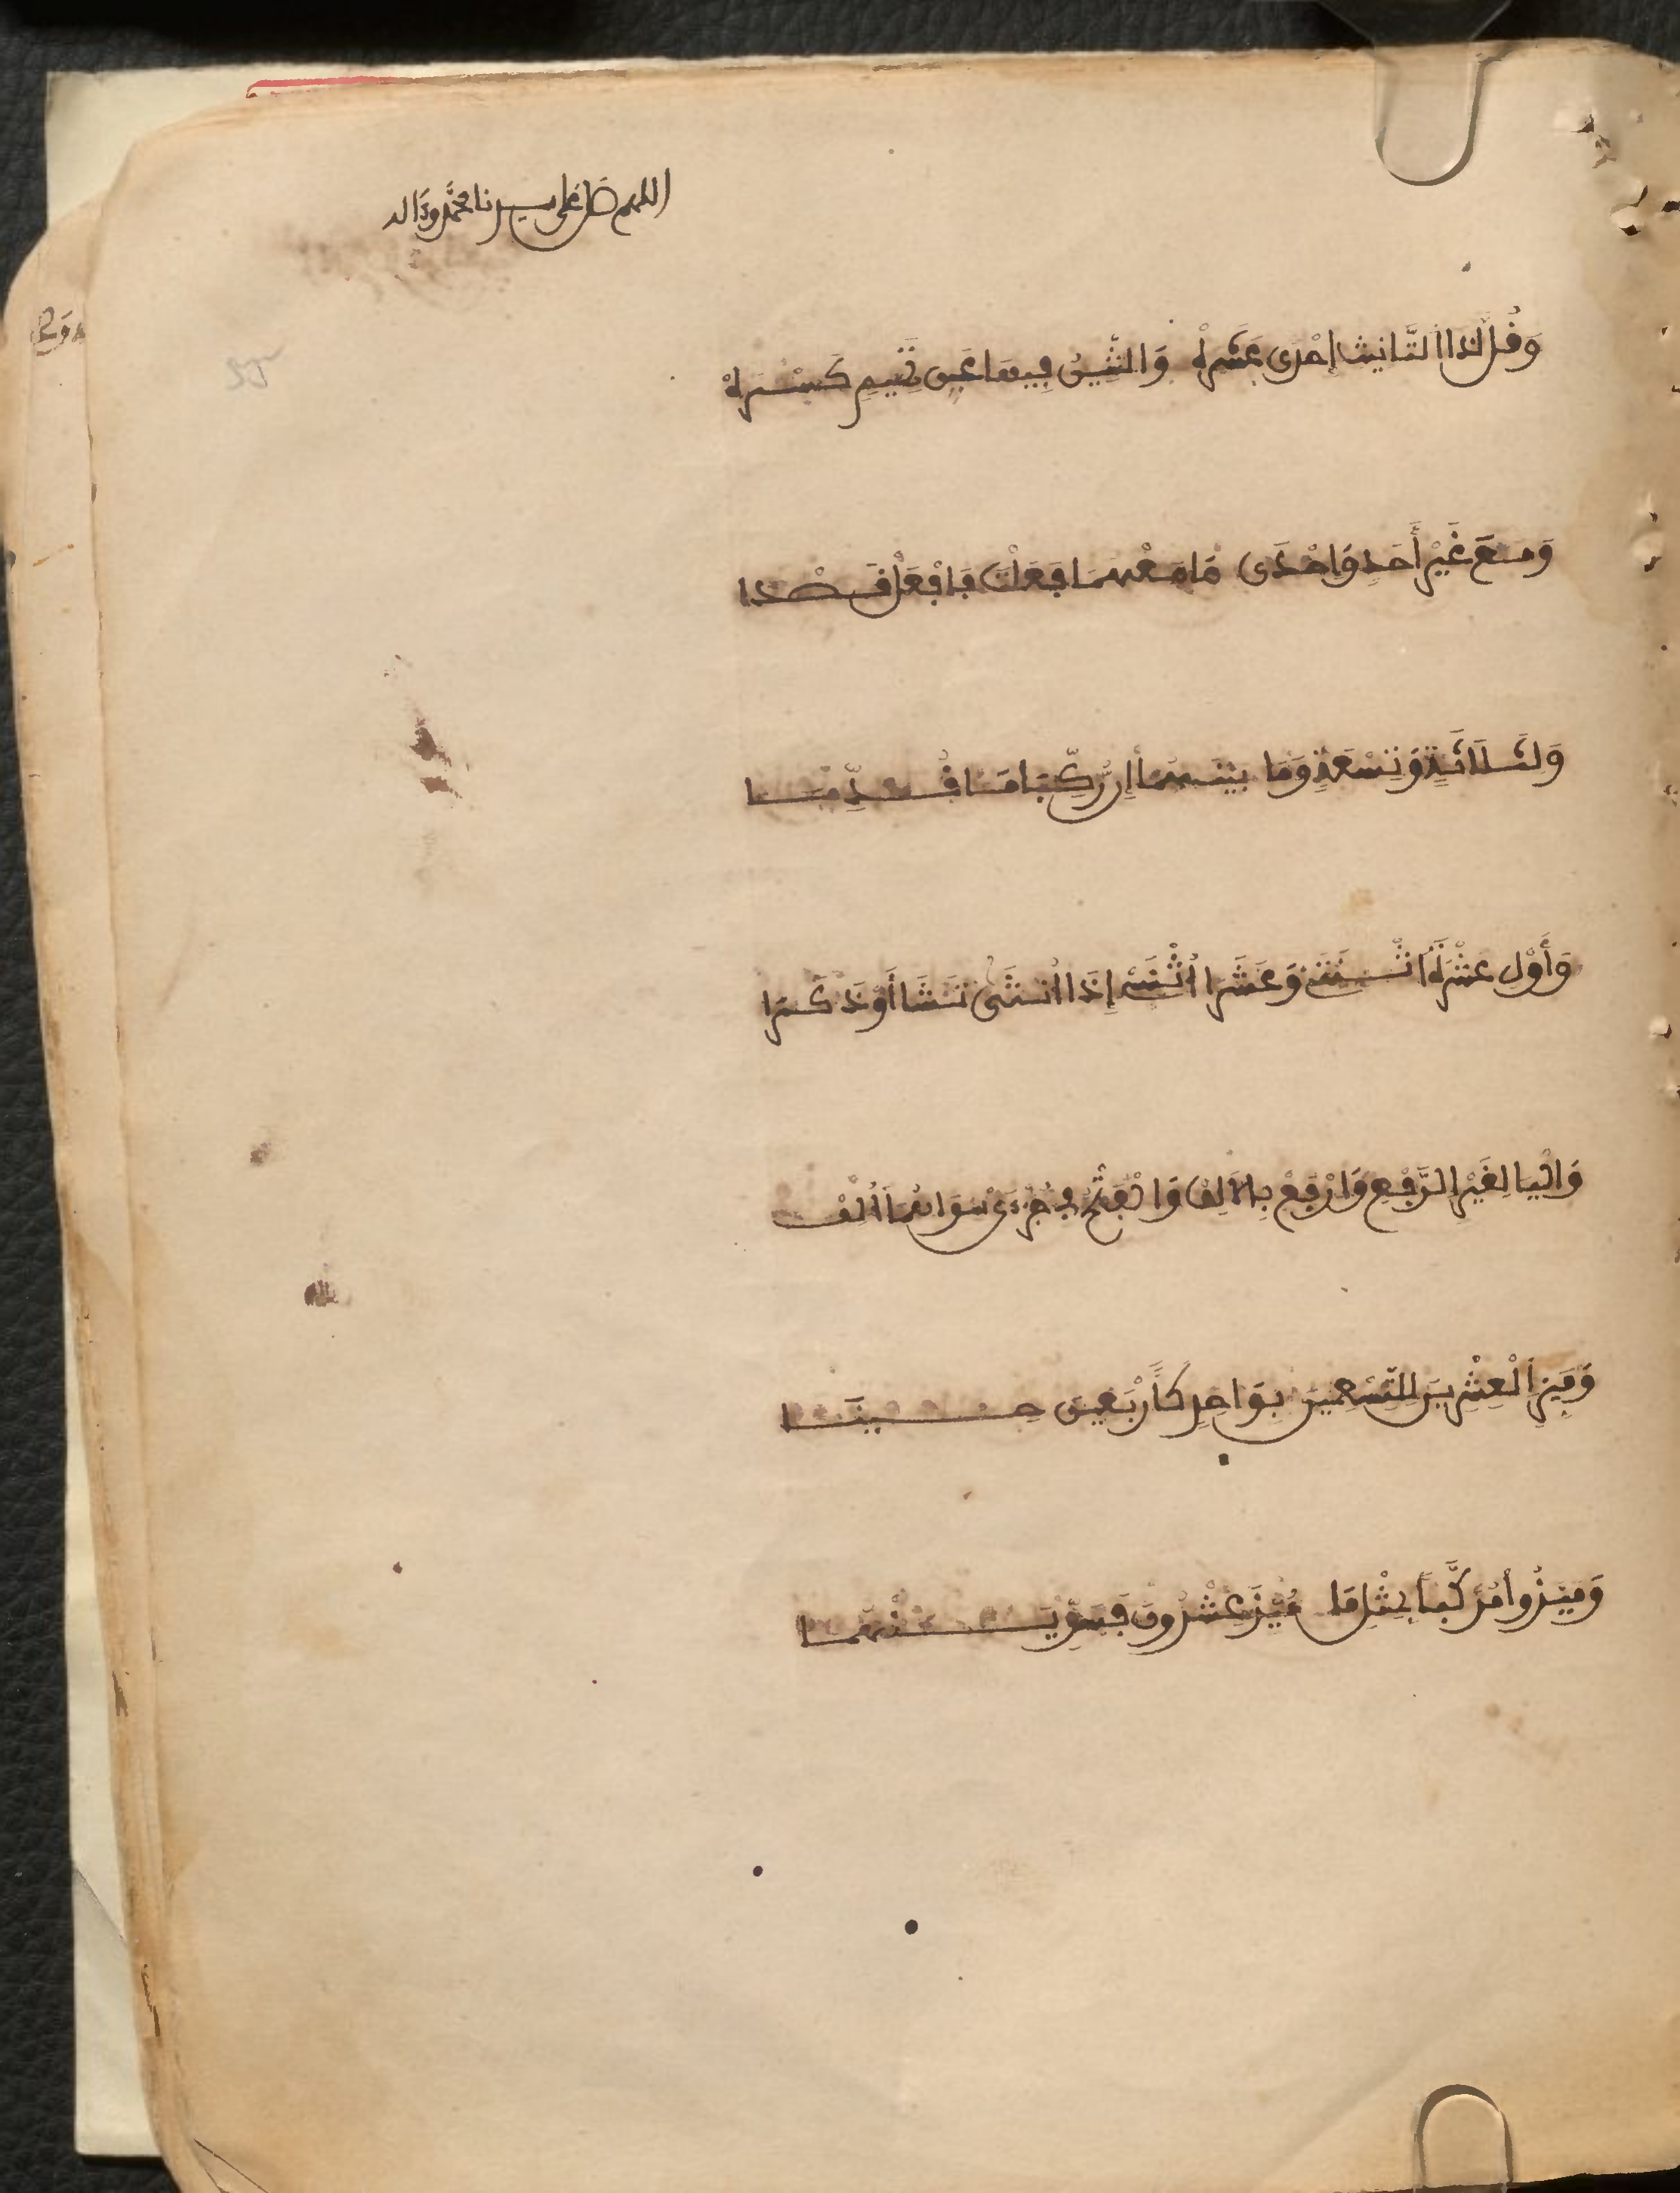 اللهم صل على سيدنا محمد وءاله
وَقُل لَّذَا التَّانِيثِ إِحْدَى عَشْرَهْ وَالشِّينُ فِيهَا عَن تَمِيمٍ كَسْرَهْ
وَمَعَ غَيْرِ أَحَدٍ وَإِحْدَى مَا مَعْهُمَا فَعَلْتَ فَافْعَلْ قَصْدَا
وَلِثَلَاثَةٍ وَتِسْعَةٍ وَمَا بَيْنَهُمَا إِن رُّكِّبَا مَا قُدِّمَا
وَأَوْلِ عَشْرَةَ اثْنَتَيْ وَعَشَرَا اثْنَيْ إِذَا انْثَى تَشَا أَوْ ذَكَرَا
وَالْيَا لِغَيْرِ الرَّفْعِ وَارْفَعْ بِالْأَلِفْ وَالْفَتْحُ فِي جُزْءَيْ سِوَاهُمَا أُلِفْ
وَمَيِّزِ الْعِشْرِينَ لِلتِّسْعِينَ بِوَاحِدٍ كَأَرْبَعِينَ حِينَا
وَمَيَّزُوا مُرَكَّبًا بِمِثْلِ مَا مُيِّزَ عِشْرُونَ فَسَوِّيَنْهُمَا